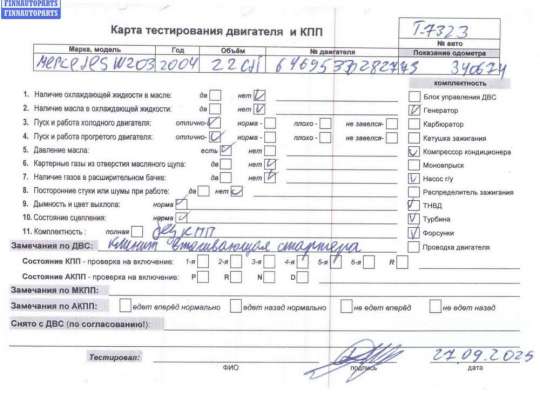 FINNAUTOPARTS
FINNAUTOPARTS
Карта тестирования двигателя и КПП
T-7323
№ авто
Марка, модель Год Объём № двигателя Показание одометра
Мерседес W203 2004 2.2 CDI 340674
комплектность
1. Наличие охлаждающей жидкости в масле: да нет
2. Наличие масла в охлаждающей жидкости: да нет
3. Пуск и работа холодного двигателя: отлично- норма - плохо - не завелся-
4. Пуск и работа прогретого двигателя: отлично- норма - плохо - не завелся-
5. Давление масла: есть нет
6. Картерные газы из отверстия масляного щупа: да нет
7. Наличие газов в расширительном бачке: да нет
8. Посторонние стуки или шумы при работе: да нет
9. Дымность и цвет выхлопа: норма
10. Состояние сцепления: норма
11. Комплектность : полная без КПП
Блок управления ДВС
Генератор
Карбюратор
Катушка зажигания
Компрессор кондиционера
Моновпрыск
Насос г/у
Распределитель зажигания
ТНВД
Турбина
Форсунки
Проводка двигателя
Замечания по ДВС: клинит втягивающая стартера
Состояние КПП - проверка на включение: 1-я 2-я 3-я 4-я 5-я 6-я R
Состояние АКПП - проверка на включение: P R N D
Замечания по МКПП:
Замечания по АКПП: едет вперёд нормально едет назад нормально не едет вперёд не едет назад
Снято с ДВС (по согласованию!):
Тестировал: 27.09.2025
ФИО подпись дата